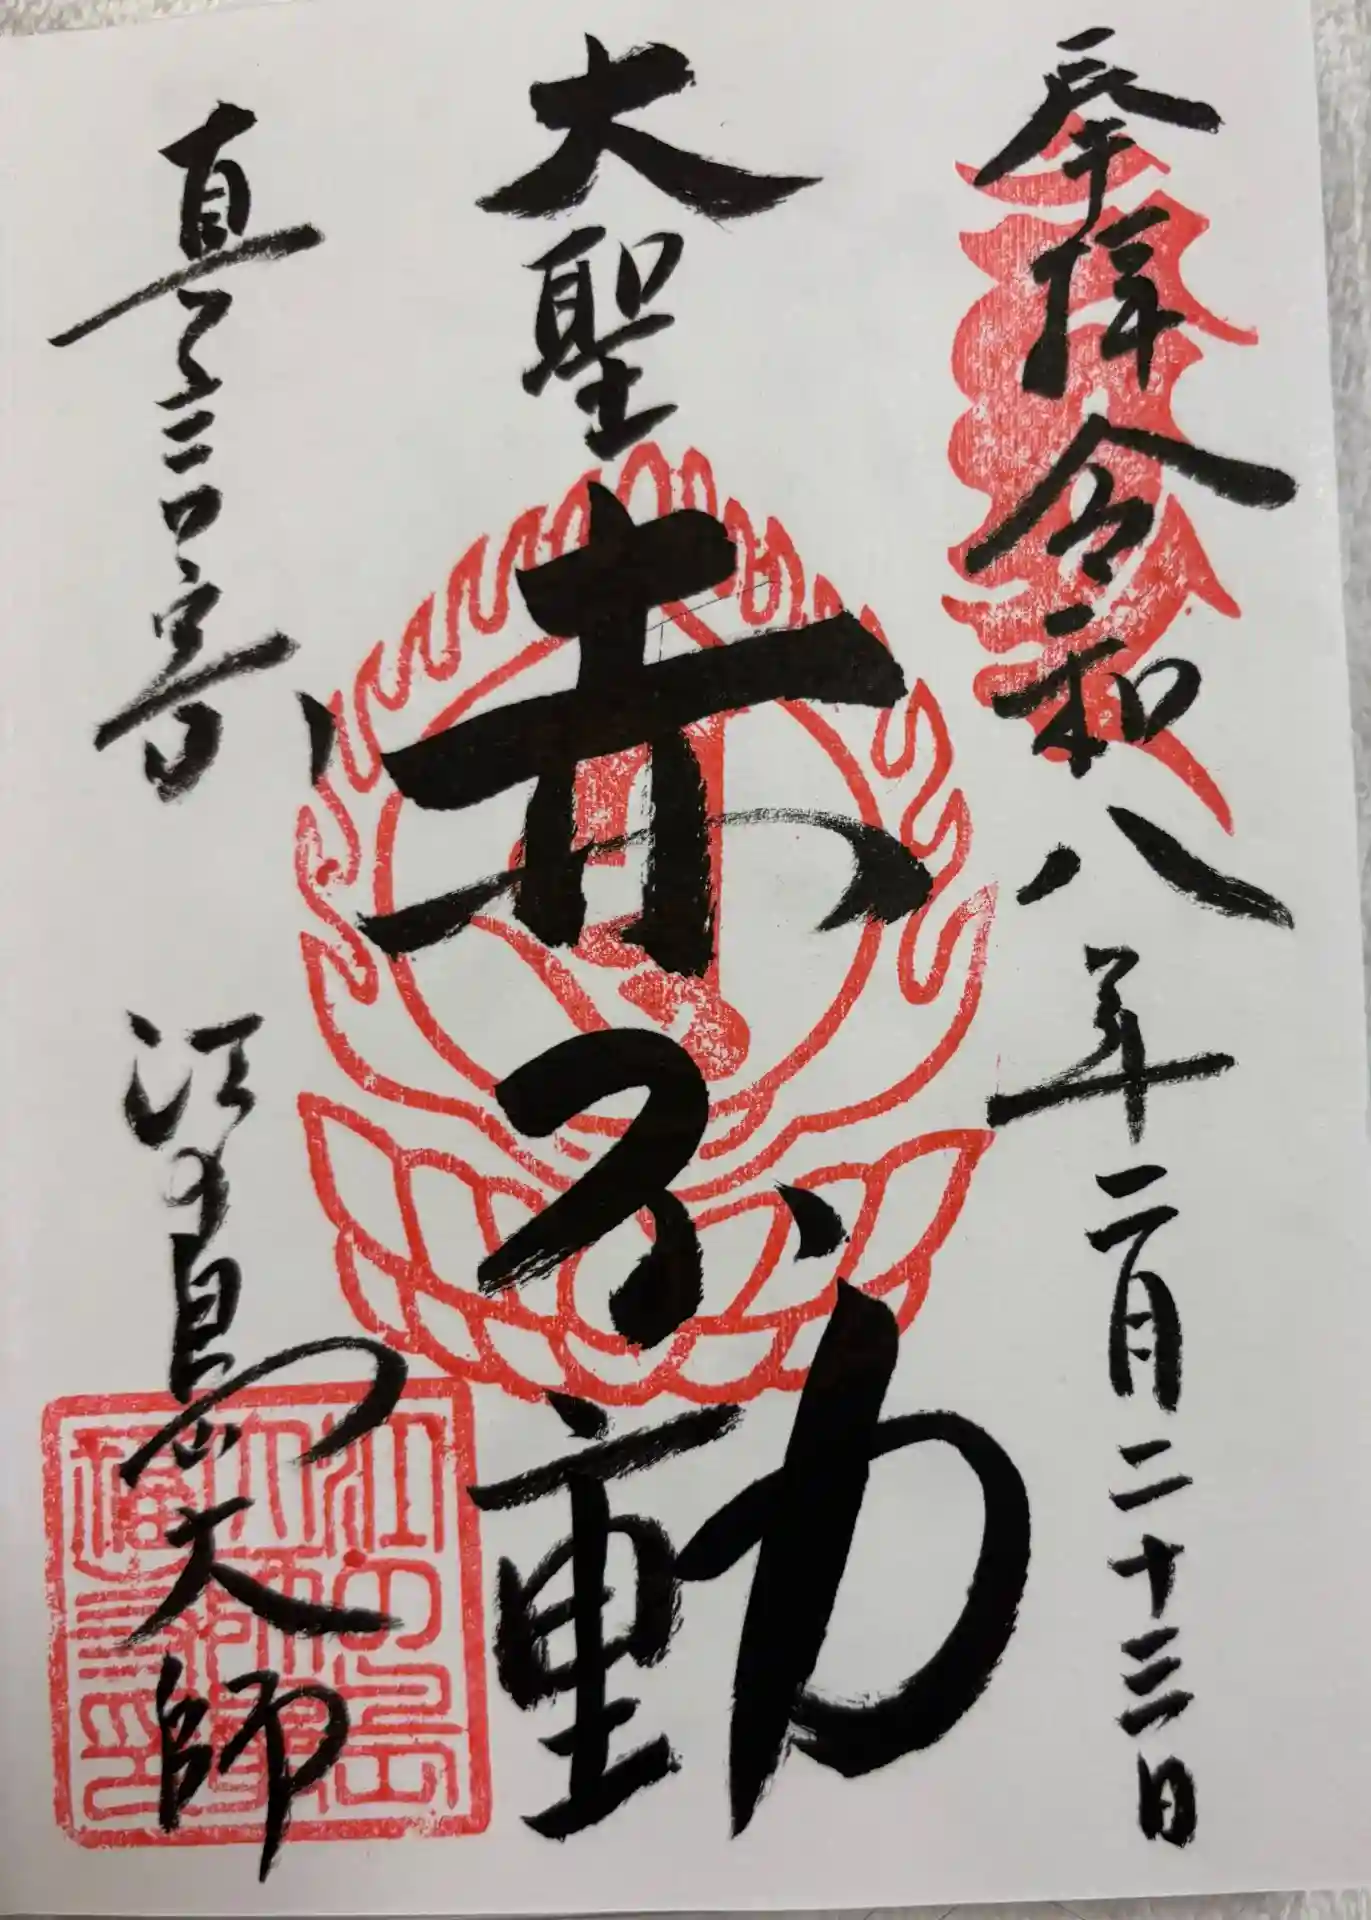 奉拝 令和八年二月二十三日
大聖 赤不動
真言宗 江の島大師